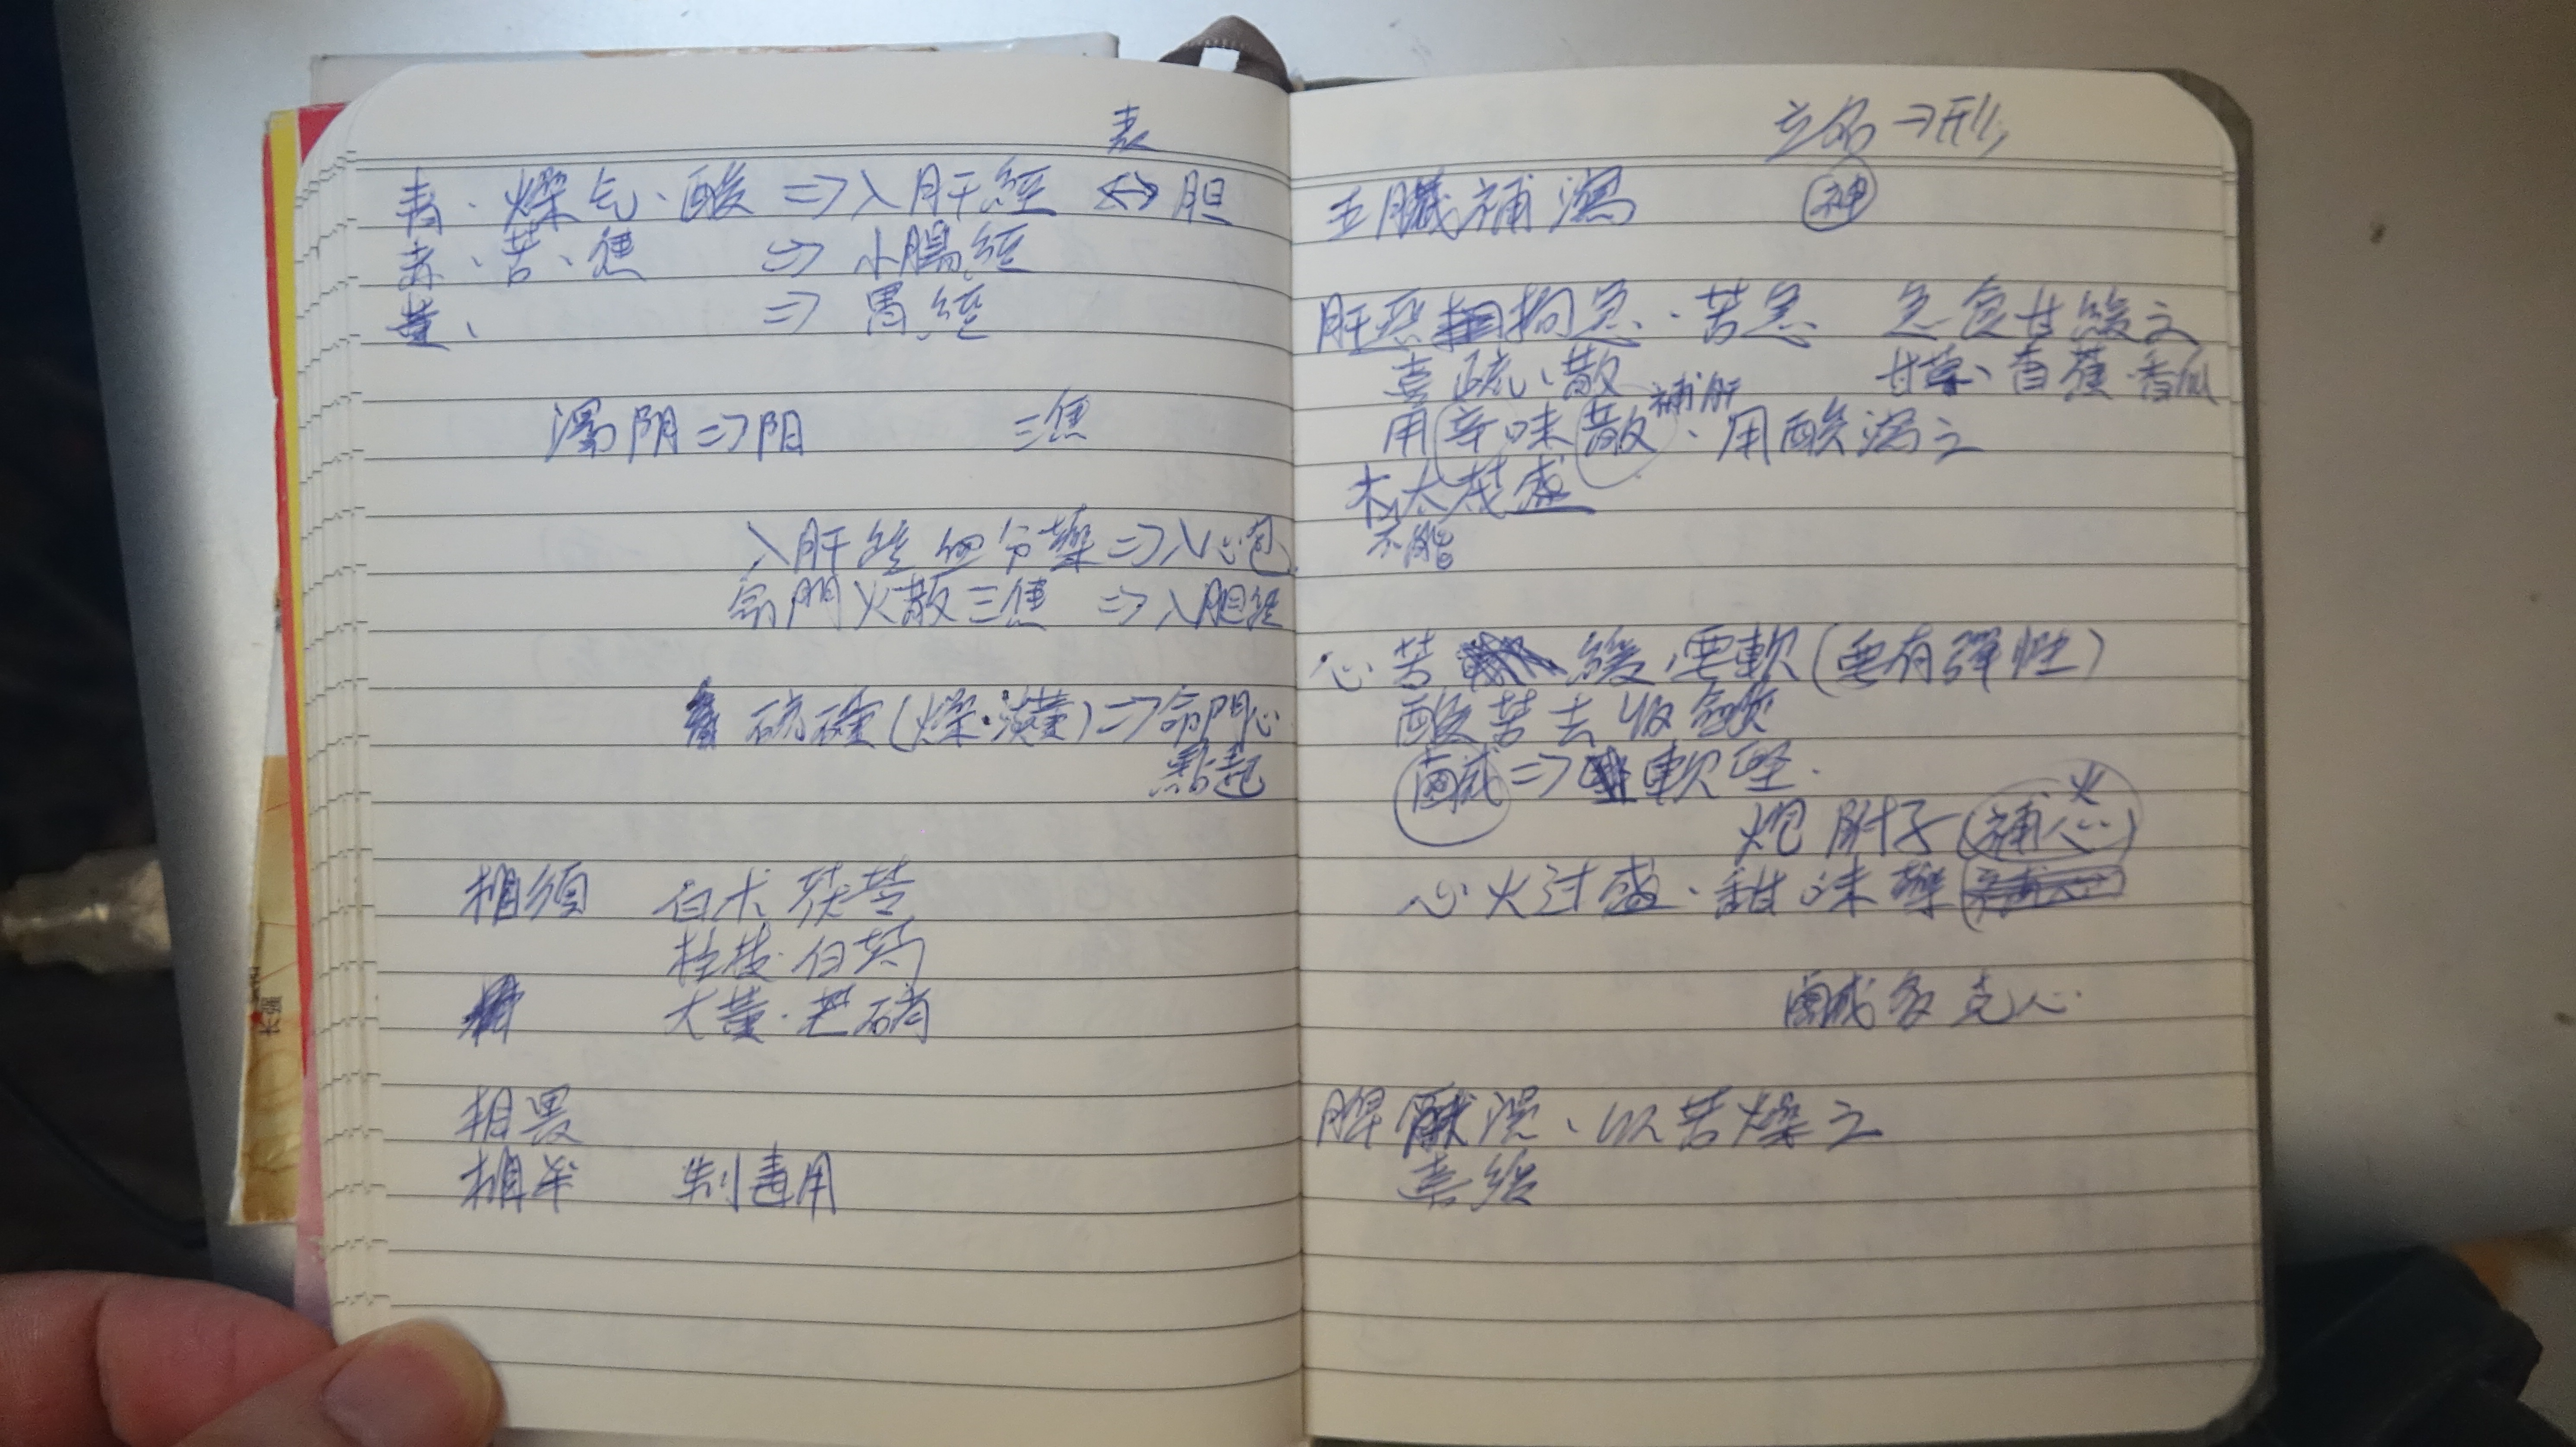 表
青、燥气、酸 ⇒ 入肝經 ⇔ 胆
赤、苦、焦 ⇒ 小腸經
黃、 ⇒ 胃經
濁阴⇒阳 三焦
入肝經血分藥⇒入心包
命門火散三焦 ⇒入胆經
硫磺(燥·淡黃)⇒命門心
點起
相須 白术 茯苓
桂枝·白芍
大黃·芒硝
相畏
相半 制毒用
立名⇒形
神
五臟補瀉
肝 拘急、苦急 急食甘緩之
喜疏、散 甘草、香蕉·香瓜
用辛味散 補肝、用酸瀉之
木太茂盛
不能
心苦 緩、要軟(要有彈性)
酸苦去收斂
鹹⇒軟堅.
炮附子(補心火)
心火过盛、甜味藥
鹹多克心
脾 濕、以苦燥之
喜緩